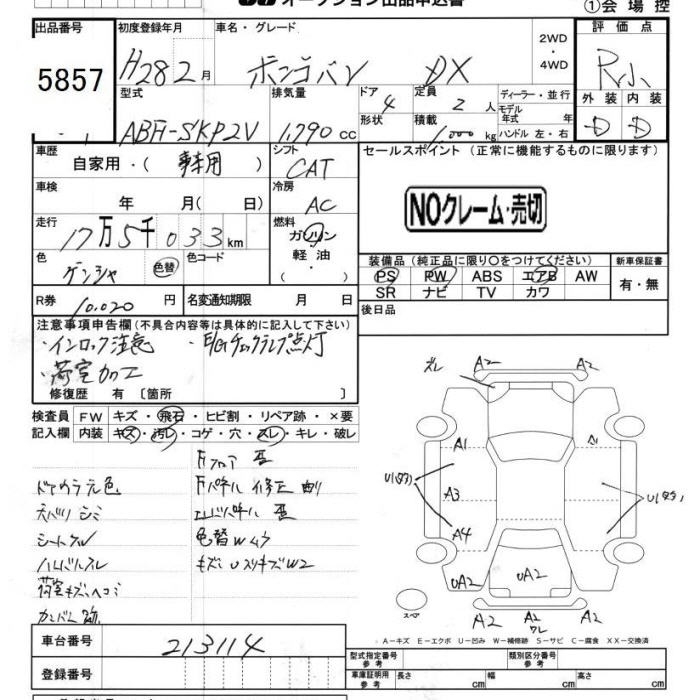 オークション出品申込書 ①会場控
出品番号 初度登録年月 車名・グレード 評価点
5857 H28 2月 ボンゴバン DX 2WD・4WD R小
型式 排気量 ドア 定員 ディーラー・並行 外装 内装
ABF-SKP2V 1,790cc 4 2人 モデル年式 年 D D
形状 積載 1,000kg ハンドル 左・右
車歴 シフト セールスポイント (正常に機能するものに限ります)
自家用・( 事業用 ) CAT
車検 冷房 NOクレーム・売切
年 月( 日) AC
走行 燃料
17万5千033km ガソリン・軽油・
色 色替 色コード 装備品 (純正品に限り○をつけてください) 新車保証書
ゲンシャ PS PW ABS エアB AW 有・無
R券 名変通知期限 SR ナビ TV カワ
10,020円 月 日 後日品
注意事項申告欄 (不具合内容等は具体的に記入して下さい)
・インロック注意 ・E/Gチェックランプ点灯
・荷室加工
修復歴 有〔箇所 〕
検査員 FW キズ・飛石・ヒビ割・リペア跡・×要
記入欄 内装 キズ・汚レ・コゲ・穴・スレ・キレ・破レ
Fフロア 歪
ドアウラ元色 Fパネル 修正
天バリ シミ 歪
シート 色替Wムラ
ハンドルスレ
荷室キズ、ヘコミ
跡
ズレ A2 A2
A1 A3 A4
UA2 UA2 UA2
A2 A2 A2
スペア
A－キズ E－エクボ U－凹み W－補修跡 S－サビ C－腐食 XX－交換済
車台番号 213114
登録番号
型式指定番号 参考 類別区分番号 参考
車庫証明用 参考 長さ cm 幅 cm 高さ cm